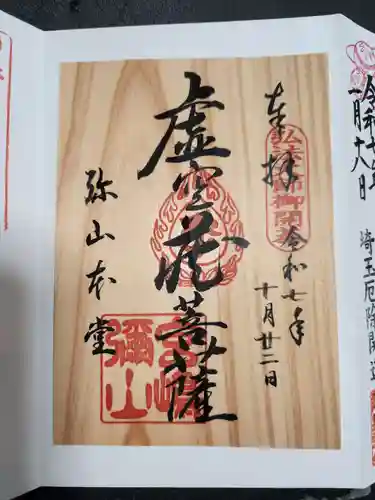 奉拝
弘法大師御開基
令和七年
十月廿二日
虚空蔵菩薩
弥山本堂
宮嶋
彌山
令和七年
一月十八日
埼玉厄除開運